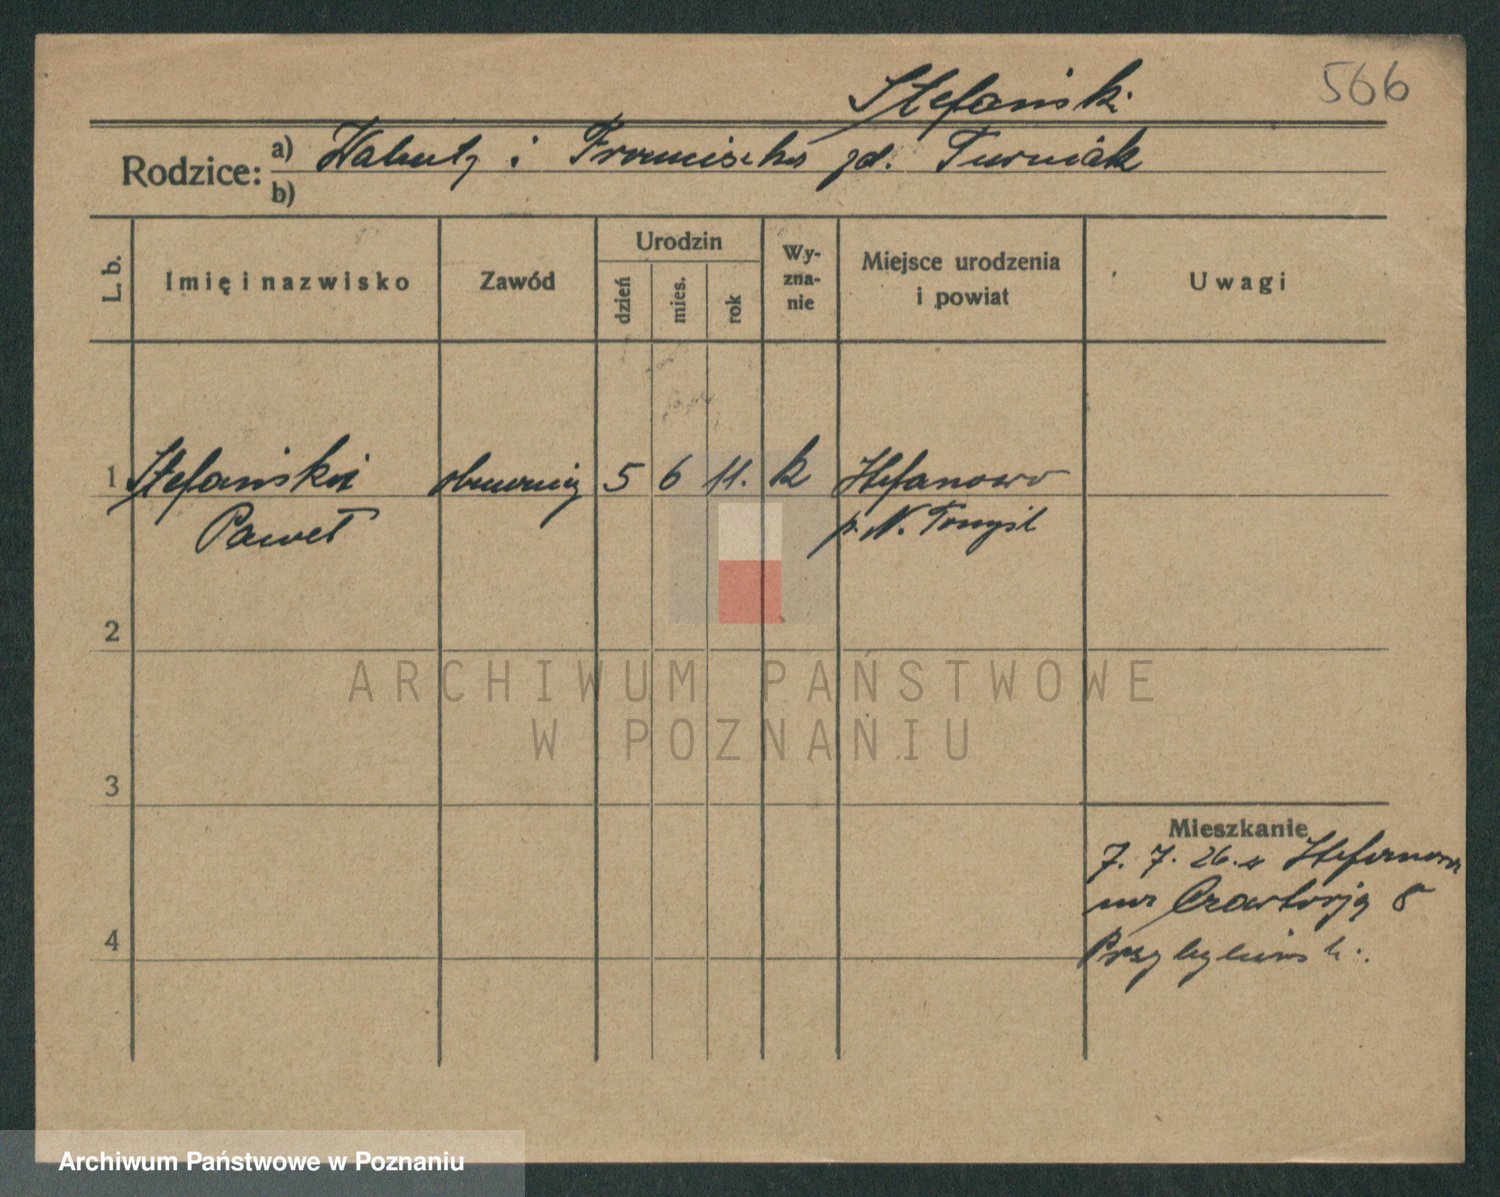 566
Stefański
Rodzice: a) Walenty i Franciszka zd. Turniak
b)
L. b. Imię i nazwisko Zawód Urodzin dzień mies. rok Wy-zna-nie Miejsce urodzenia i powiat Uwagi
1 Stefański 5 6 11. k Stefanowo
Paweł p. N. Tomyśl
2
ARCHIWUM PAŃSTWOWE
W POZNANIU
3
Mieszkanie
7. 7. 26. z Stefanowa
na 8
4
Archiwum Państwowe w Poznaniu